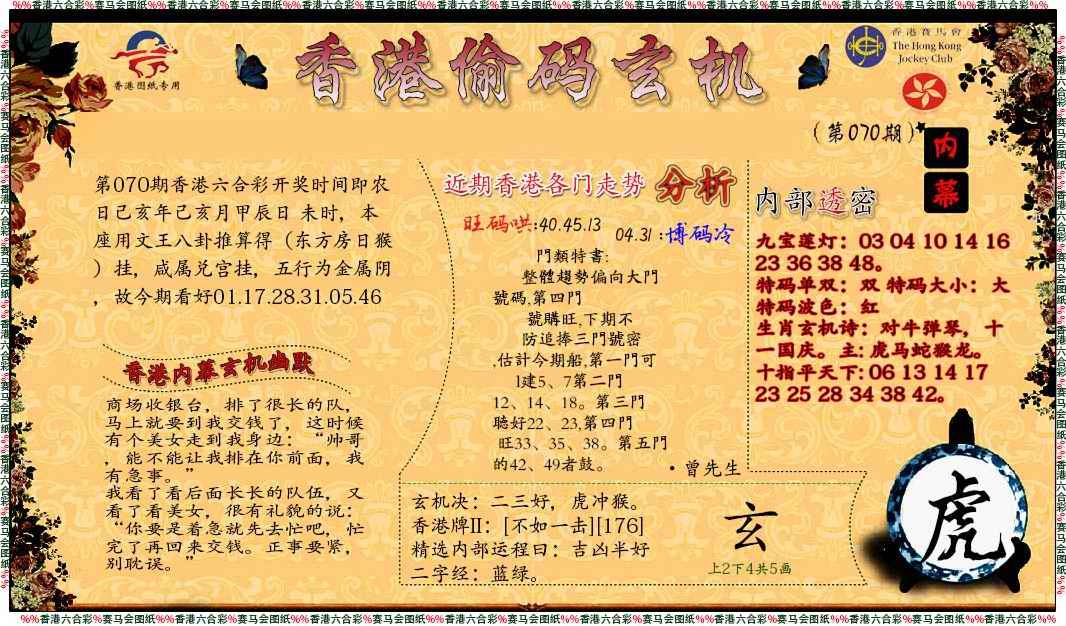 %%香港六合彩%赛马会图纸%%香港六合彩%赛马会图纸%%香港六合彩%赛马会图纸%%香港六合彩%赛马会图纸%%香港六合彩%赛马会图纸%%香港六合彩%赛马会图纸%%香港六合彩%%
香港图纸专用
香港偷码玄机
香港賽馬會
The Hong Kong
Jockey Club
(第070期)
内
幕
第070期香港六合彩开奖时间即农
日己亥年己亥月甲辰日 未时，本
座用文王八卦推算得（东方房日猴
）挂，咸属兑宫挂，五行为金属阴
，故今期看好01.17.28.31.05.46
香港内幕玄机幽默
商场收银台，排了很长的队，
马上就要到我交钱了，这时候
有个美女走到我身边：“帅哥
，能不能让我排在你前面，我
有急事。”
我看了看后面长长的队伍，又
看了看美女，很有礼貌的说：
“你要是着急就先去忙吧，忙
完了再回来交钱。正事要紧，
别耽误。”
近期香港各门走势 分析
旺码哄:40.45.13
04.31 :博码冷
門類特書:
整體趨勢偏向大門
號碼,第四門
號購旺,下期不
防追捧三門號密
,估計今期船,第一門可
1建5、7第二門
12、14、18。第三門
聽好22、23,第四門
旺33、35、38。第五門
的42、49者鼓。
·曾先生
内部透密
九宝莲灯：03 04 10 14 16
23 36 38 48。
特码单双：双 特码大小：大
特码波色：红
生肖玄机诗：对牛弹琴，十
一国庆。主: 虎马蛇猴龙。
十指平天下: 06 13 14 17
23 25 28 34 38 42。
玄机决：二三好，虎冲猴。
香港牌II：[不如一击][176]
精选内部运程曰：吉凶半好
二字经：蓝绿。
玄
上2下4共5画
虎
%%香港六合彩%赛马会图纸%%香港六合彩%赛马会图纸%%香港六合彩%赛马会图纸%%香港六合彩%赛马会图纸%%香港六合彩%赛马会图纸%%香港六合彩%赛马会图纸%%香港六合彩%%